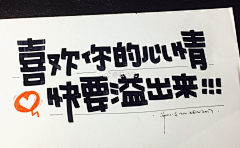 喜欢你的心情
快要溢出来!!!